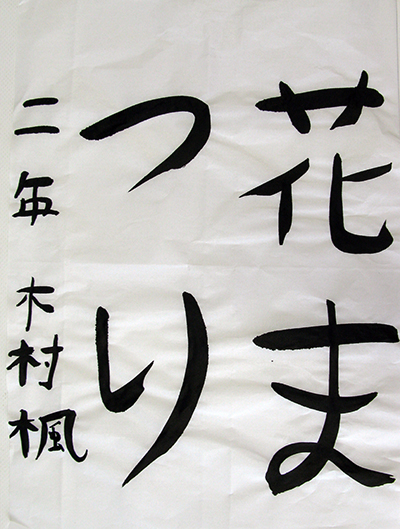 花ま
つり
二年 木村楓